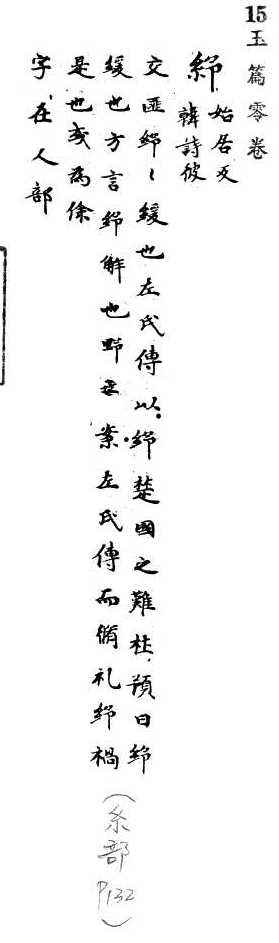 15玉篇零卷
紓 始居反
韓詩彼
交匪紓〻緩也左氏傳以紓楚國之難杜預曰紓
緩也方言紓解也野王案左氏傳而脩礼紓禍
是也或爲徐
字在人部
(糸部P132)